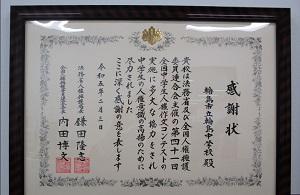 感謝状
輪島市立輪島中学校殿
貴校は法務省及び全国人権擁護
委員連合会主催の第四十一回
全国中学生人権作文コンテストの
実施に多大な協力をされ
中学生の人権意識の高揚のために
尽力されました
ここに深く感謝の意を表します
令和五年二月三日
法務省人権擁護局長
鎌田隆志
全国人権擁護委員連合会長
内田博文